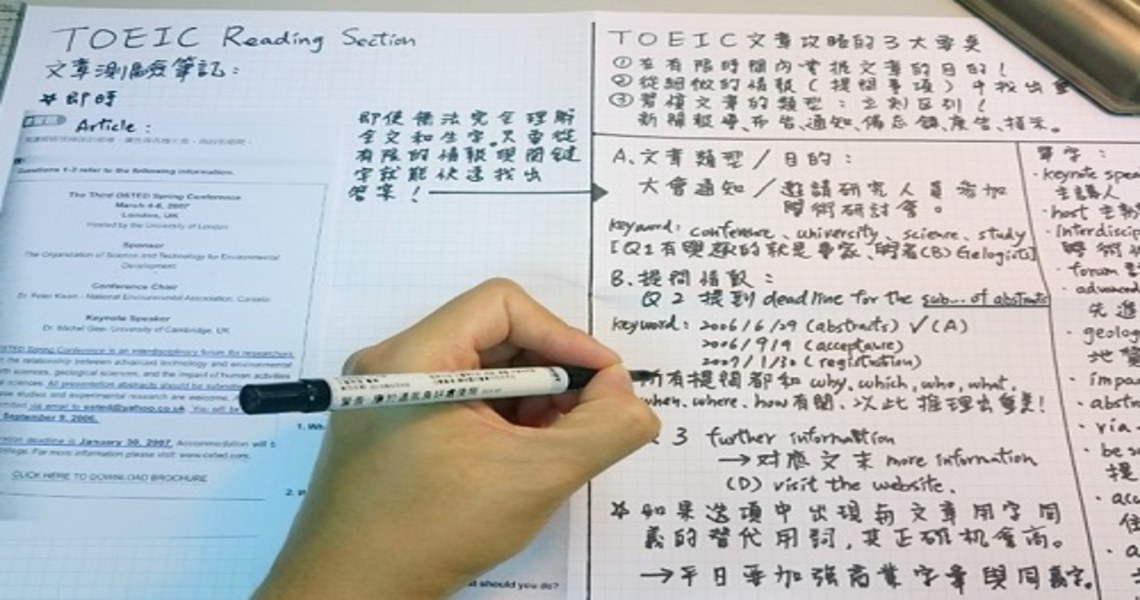 TOEIC Reading Section
文章測驗筆記:
☆即時
Article:
Questions 1-3 refer to the following information.
The Third OSTED Spring Conference
March 4-6, 2007
London, UK
Hosted by the University of London
Sponsor
The Organization of Science and Technology for Environmental
Development
Conference Chair
Dr. Peter Kwon - National Environmental Association, Canada
Keynote Speaker
Dr. Michel Gee- University of Cambridge, UK
OSTED Spring Conference is an interdisciplinary forum for researchers,
the relationship between advanced technology and environmental
sciences, geological sciences, and the impact of human activities
sciences. All presentation abstracts should be submitted
studies and experimental research are welcome.
via email to osted@yahoo.co.uk. You will be
September 9, 2006.
deadline is January 30, 2007. Accommodation will b
For more information please visit: www.osted.com.
CLICK HERE TO DOWNLOAD BROCHURE
1. Wh
2. W
should you do?
即使無法完全理解
全文和生字,只要從
有限的情報與關鍵
字就能快速找出
答案!
TOEIC文章攻略的3大要奌
①在有限時間內掌握文章的目的!
②從細微的情報(提問事項)中找出
③習慣文章的類型:立刻區別!
新聞報導、布告、通知、備忘錄、廣告、
A、文章類型/目的:
大會通知/邀請研究人員參加
學術研討會。
keyword: conference、university、science、study
[Q1有興趣的就是專家、學者(B) Gelogists]
B、提問情報:
Q2 提到deadline for the sub... of abstracts
keyword: 2006/6/29 (abstracts) ✓(A)
2006/9/9 (acceptance)
2007/1/30 (registration)
所有提問都和why, which, who, what,
when, where, how有關,以此推理出重奌!
3 further information
→対應文末more information
(D) visit the website.
☆如果選項中出現與文章用字同
義的替代用詞,其正確機會高。
→平日要加強商業字彙與同義字。
單字:
·keynote spea
主講人
·host 主辦
·interdiscip
學術
·forum
·advanced
先進
·geolog
地質
·impac
·abstr
·via
·be su
提
·acc
住
·a